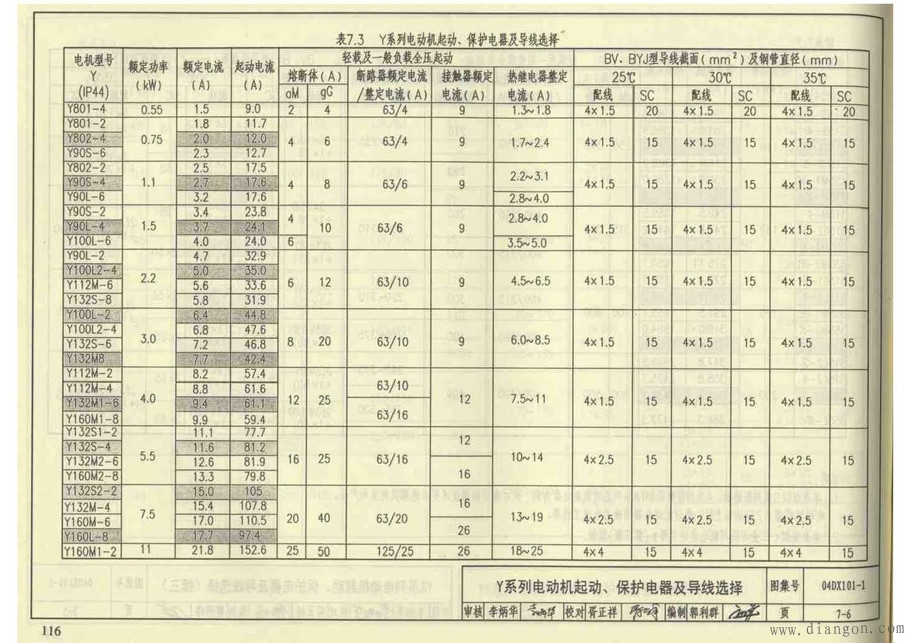 表7.3 Y系列电动机起动、保护电器及导线选择
电机型号 Y (IP44) 额定功率 (kW) 额定电流 (A) 起动电流 (A) 轻载及一般负载全压起动 BV、BYJ型导线截面(mm²)及钢管直径(mm)
熔断体(A) 断路器额定电流/整定电流(A) 接触器额定电流(A) 热继电器整定电流(A) 25℃ 30℃ 35℃
aM gG 配线 SC 配线 SC 配线 SC
Y801-4 0.55 1.5 9.0 2 4 63/4 9 1.3~1.8 4×1.5 20 4×1.5 20 4×1.5 20
Y801-2 1.8 11.7
Y802-4 0.75 2.0 12.0 4 6 63/4 9 1.7~2.4 4×1.5 15 4×1.5 15 4×1.5 15
Y90S-6 2.3 12.7
Y802-2 2.5 17.5
Y90S-4 1.1 2.7 17.6 4 8 63/6 9 2.2~3.1 4×1.5 15 4×1.5 15 4×1.5 15
Y90L-6 3.2 17.6 2.8~4.0
Y90S-2 3.4 23.8 4 2.8~4.0
Y90L-4 1.5 3.7 24.1 10 63/6 9 4×1.5 15 4×1.5 15 4×1.5 15
Y100L-6 4.0 24.0 6 3.5~5.0
Y90L-2 4.7 32.9
Y100L2-4 2.2 5.0 35.0 6 12 63/10 9 4.5~6.5 4×1.5 15 4×1.5 15 4×1.5 15
Y112M-6 5.6 33.6
Y132S-8 5.8 31.9
Y100L-2 6.4 44.8
Y100L2-4 3.0 6.8 47.6 8 20 63/10 9 6.0~8.5 4×1.5 15 4×1.5 15 4×1.5 15
Y132S-6 7.2 46.8
Y132M8 7.7 42.4
Y112M-2 8.2 57.4 63/10
Y112M-4 4.0 8.8 61.6 12 25 12 7.5~11 4×1.5 15 4×1.5 15 4×1.5 15
Y132M1-6 9.4 61.1 63/16
Y160M1-8 9.9 59.4
Y132S1-2 11.1 77.7 12
Y132S-4 5.5 11.6 81.2 16 25 63/16 10~14 4×2.5 15 4×2.5 15 4×2.5 15
Y132M2-6 12.6 81.9 16
Y160M2-8 13.3 79.8
Y132S2-2 15.0 105 16
Y132M-4 7.5 15.4 107.8 20 40 63/20 13~19 4×2.5 15 4×2.5 15 4×2.5 15
Y160M-6 17.0 110.5 26
Y160L-8 17.7 97.4
Y160M1-2 11 21.8 152.6 25 50 125/25 26 18~25 4×4 15 4×4 15 4×4 15
Y系列电动机起动、保护电器及导线选择 图集号 04DX101-1
审核 李炳华 校对 胥正祥 编制 郭利群 页 7-6
116
www.diangon.com